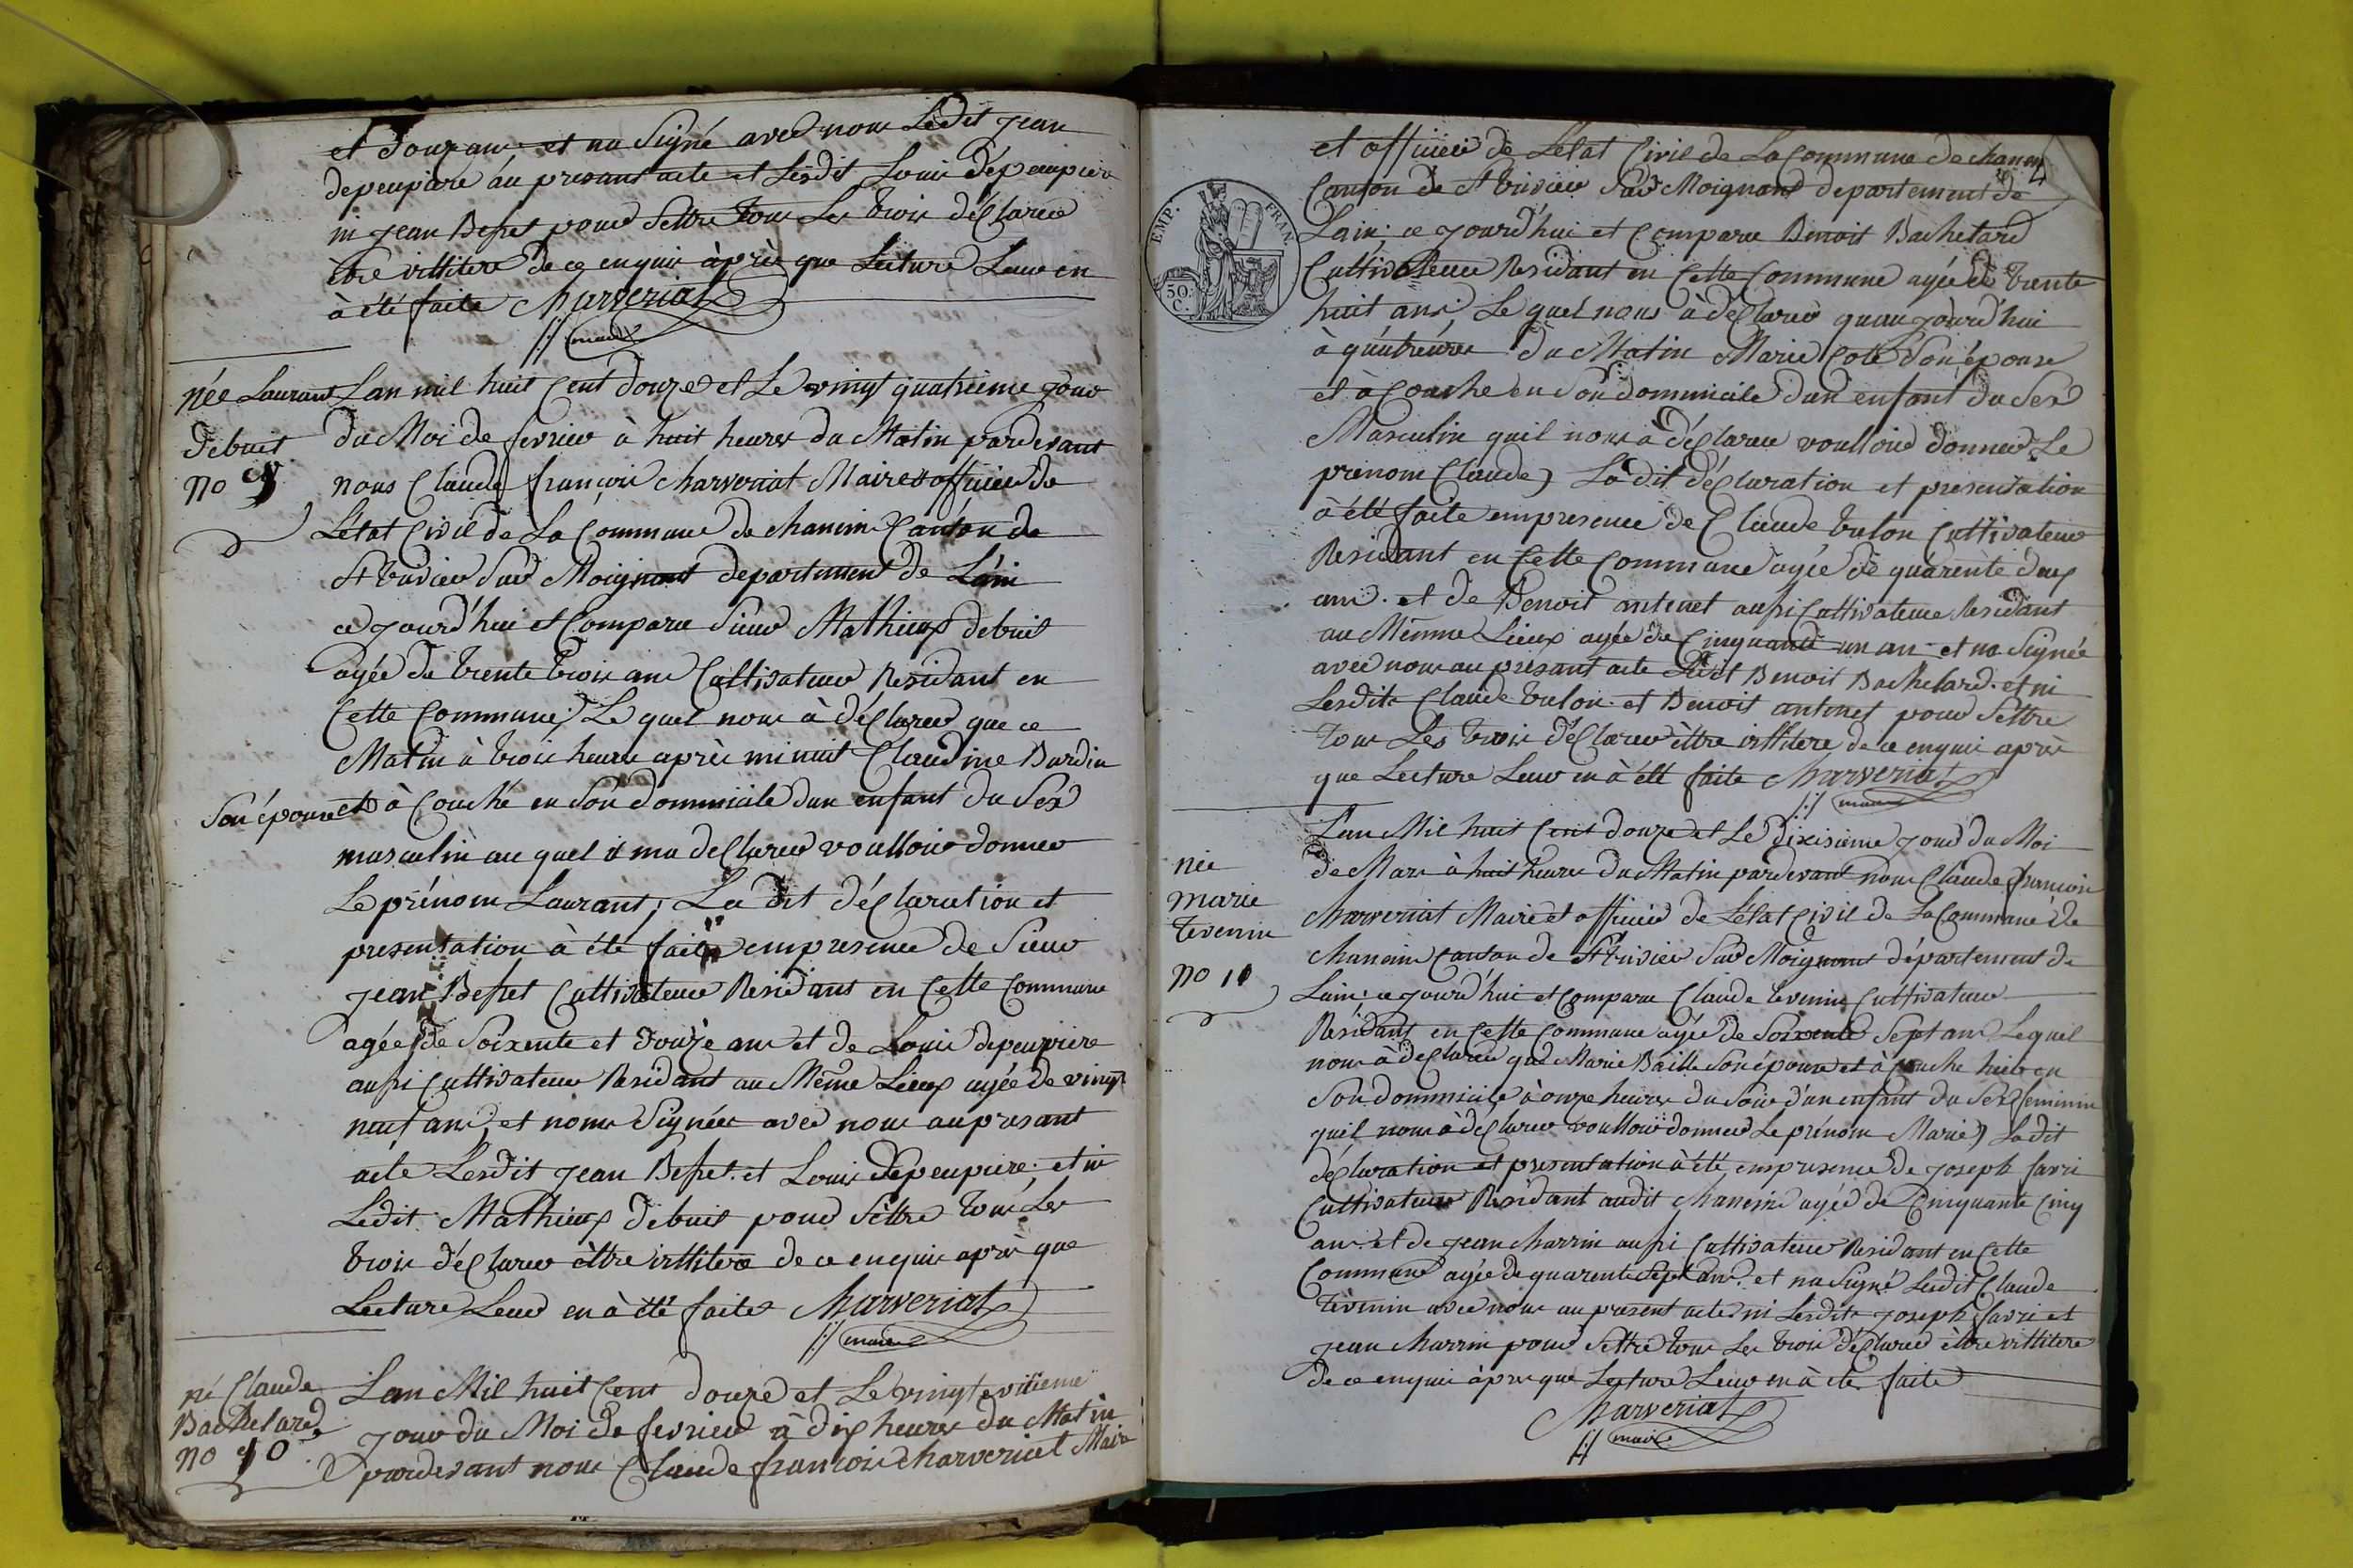 et douz ans et na Signé avec nous Ledit jean
depeupière au presant acte et Lesdit Louis dépeupier
ni jean Besset pour Settre tous Les trois déClarer
être illitere de ce enquis àprès que Lecture Leur en
à été faite Charveriat
maire
née Laurant
debuit
no 9
Lan mil huit Cent douze et Le vingt quatrieme jour
du Moi de fevrier à huit heures du Matin pardevant
nous Claude françois Charveriat Maire et officier de
Létat Civil de La Commune de chanein Canton de
St trivier Sur Moignant departement de Lain
ce jourd'hui et Comparu Sieur Mathieux debuit
agée de trente trois ans Cultivateur Residant en
Cette Commune, Le quel nous à déClarer que ce
Matin à trois heures après minuit Claudine Bardin
Son épouse et à Couché en Son dommicile dun enfant du Sex
masculin au quel il ma deClarer voulloir donner
Le prénom Laurant, La dit déClaration et
presentation à été faite empresence de Sieur
jean Besset Cultivateur Residant en Cette Commune
agée de Soixente et douze ans et de Louis depeupiere
aussi Cultivateur Residant au Même Lieux agée de vingt
neuf ans, et nons Signée avec nous au presant
acte Lesdit jean Besset et Louis depeupiere, et ni
Ledit Mathieux debuit pour Settre tous Les
trois déClarer être illitere de ce enquis après que
Lecture Leur en à été faite Charveriat
maire
né Claude
Bachelard
no 10
Lan Mil huit Cent douze et Le vingt
jour du Moi de fevrier à dix heures du Matin
pardevant nous Claude françois Charveriat Maire
4
et officier de Létat Civil de La Commune de chanein
Canton de St trivier Sur Moignant departement de
Lain: ce jourd'hui et Comparu Benoit Bachelard
Cultivateur Residant en Cette Commune agée de trente
huit ans, Le quel nous à déClarer quaujourd'hui
à quatreures du Matin Marie Cote Son épouse
et à Couche en Son dommicile dun enfant du Sex
Masculin quil nous à déClarer voulloir donner Le
prenom Claude, La dit déClaration et presentation
à été faite empresence de Claude tulon Cultivateur
Residant en Cette Commune agée de quarente deux
ans. et de Benoit antenet aussi Cultivateur Residant
au Mêmme Lieux agée de Cinquante un an et na Signée
avec nous au présant acte Ledit Benoit Bachelard. et ni
Lesdits Claude tulon et Benoit antenet pour Settre
tous Les trois déClarer être illitere de ce enquis après
que Lecture Leur en à été faite Charveriat
maire
EMP. FRAN.
50 C.
née
marie
tevenin
no 11
Lan Mil huit Cent douze et Le dixisieme jour du Moi
de Mars à huit heures du Matin pardevant nous Claude françois
Charveriat Maire et officier de Létat Civil de La Commune de
Chanein Canton de St trivier Sur Moignant département de
Lain; ce jourd'hui et Comparu Claude tevenin Cultivateur
Residant en Cette Commune agée de Soixente Sept ans Lequel
nous à deClarer que Marie Baille Son épouse et à Couche hier en
Son dommicile à onze heures du Soir d'un enfant du Sex feminin
quil nous à deClarer voulloir donner Le prénom Marie, La dit
déClaration et presentation à été empresence de joseph favri
Cultivateur Residant audit Chanein agée de Cinquante Cinq
ans. et de jean Charrin aussi Cultivateur Residant en Cette
Commune agée de quarente Sept ans. et na Signé Ledit Claude
tévenin avec nous au present acte ni Lesdits joseph favri et
jean Charrin pour Settre tous Les trois déClarer être illitere
de ce enquis àpres que Lecture Leur en à été faite
Charveriat
maire